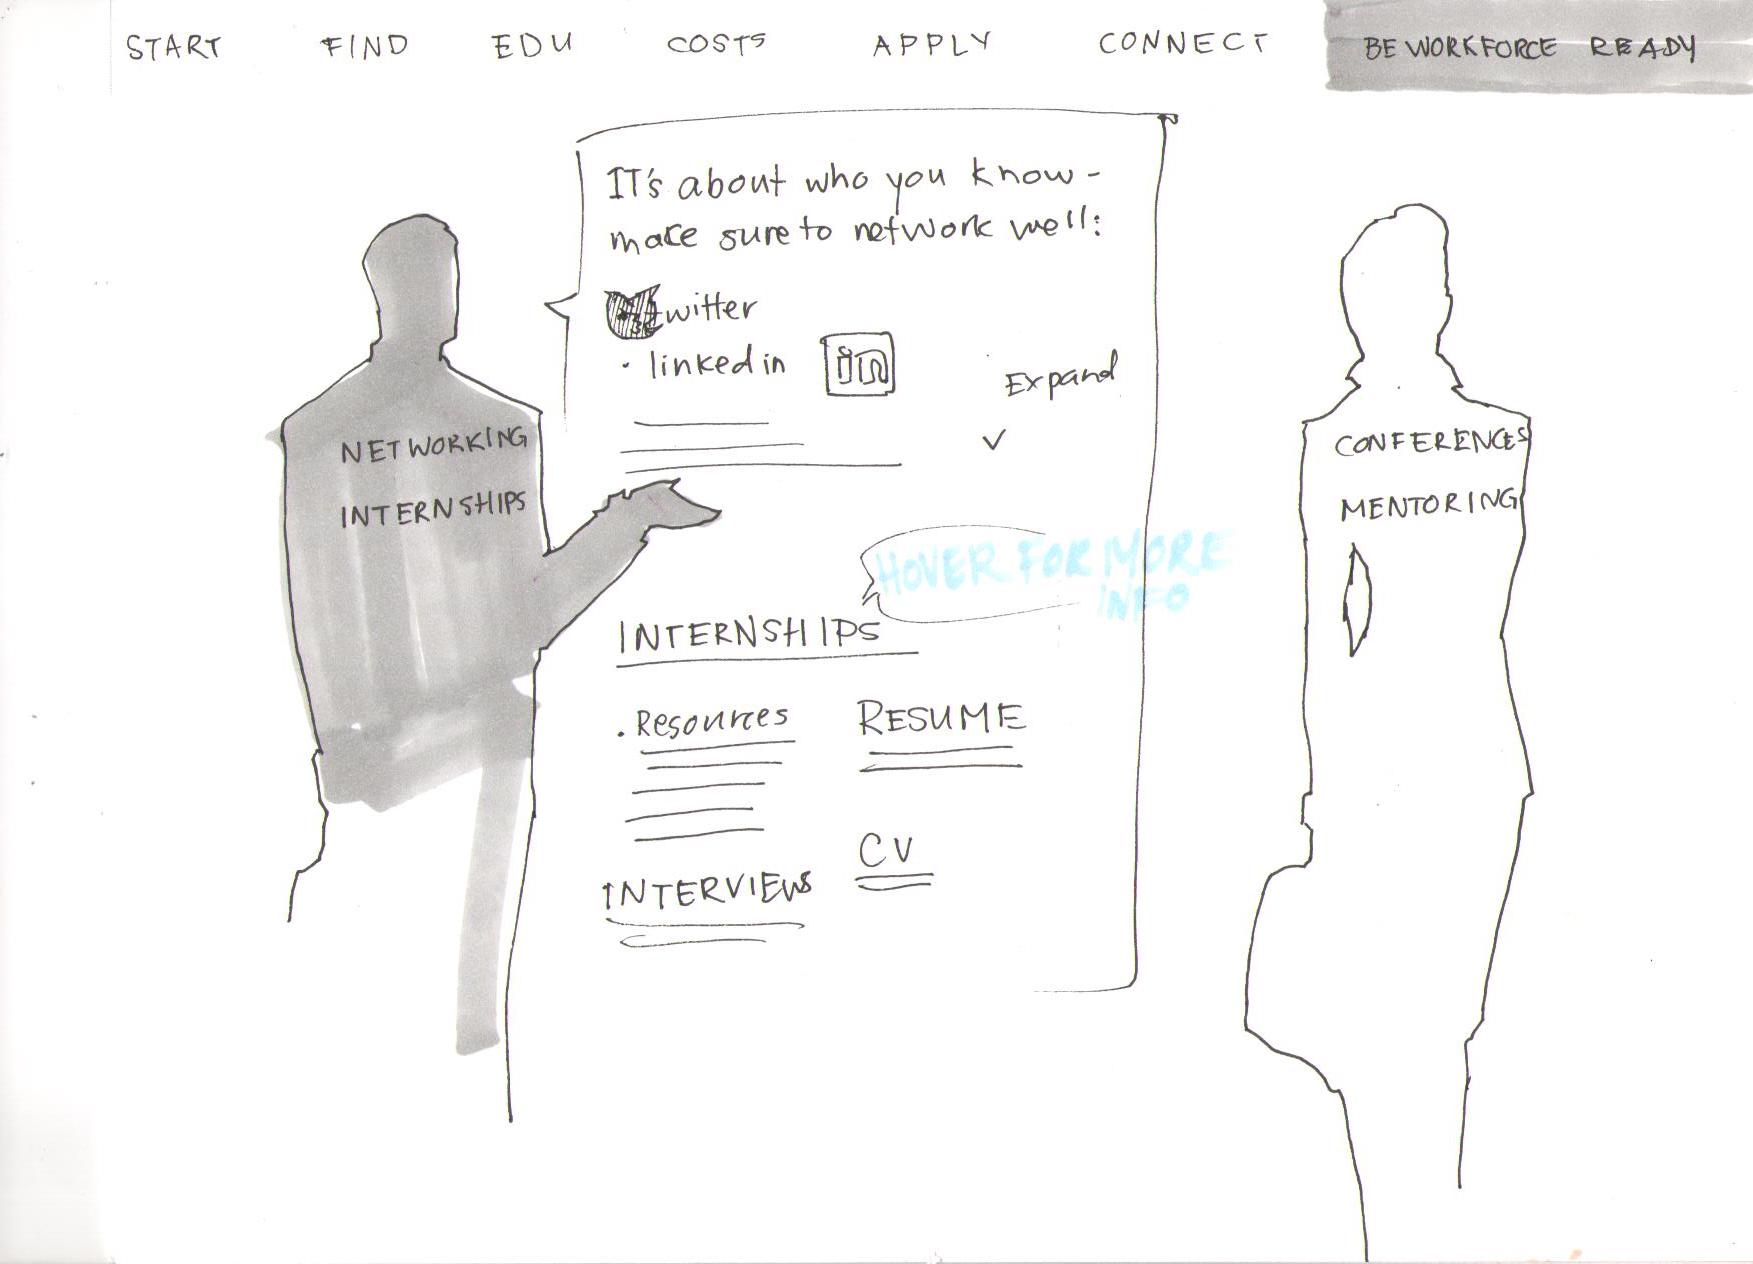 START FIND EDU COSTS APPLY CONNECT BE WORKFORCE READY
IT's about who you know -
make sure to network well:
twitter
· linkedin
in
Expand
NETWORKING
INTERNSHIPS
CONFERENCES
MENTORING
HOVER FOR MORE
INFO
INTERNSHIPS
· Resources
RESUME
CV
INTERVIEWS